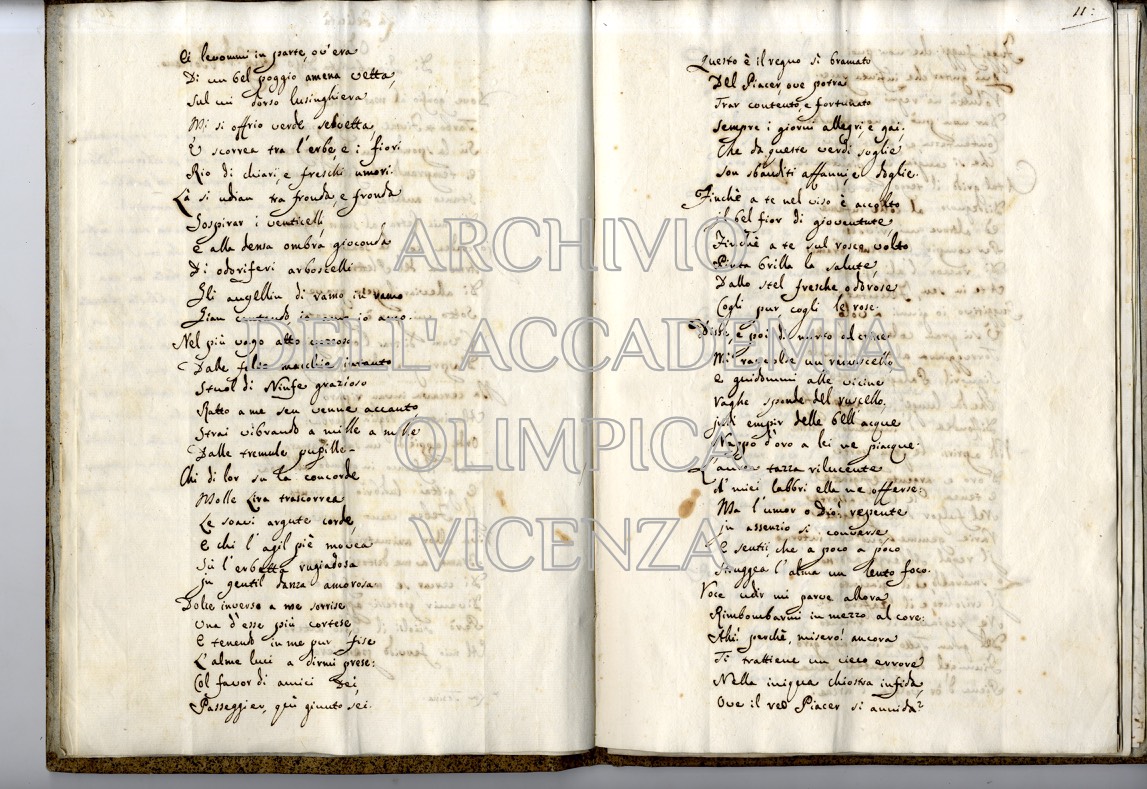 Ei levommi in parte, ov'era
Di un bel poggio amena vetta,
Sul cui dorso lusinghiera
Mi si offrio verde selvetta,
E scorrea tra l'erbe, e i fiori
Rio di chiari, e freschi umori.
Là si udian tra fronda, e fronda
Sospirar i venticelli,
E alla densa ombra gioconda
Di odoriferi arboscelli
Gli augellin di ramo in ramo
Gian cantando io amo, io amo.
Nel più vago atto
Dalle felici macchie intanto
Stuol di Ninfe grazioso
Ratto a me sen venne accanto,
Strai vibrando a mille a mille
Dalle tremule pupille.
Chi di lor su la concorde
Molle Lira trascorrea
Le soavi argute corde,
E chi l'agil piè movea
Sù l'erbetta rugiadosa
In gentil danza amorosa.
Dolce inverso a me sorrise
Una d'esse più cortese,
E tenendo in me pur fise
L'alme luci a dirmi prese:
Col favor di amici Dei,
Passeggier, quì giunto sei.
11:
Questo è il regno sì bramato
Del Piacer, ove potrai
Trar contento, e fortunato
Sempre i giorni allegri, e gai,
Che da queste verdi soglie
Son sbanditi affanni, e doglie.
Finchè a te nel viso è accolto
il bel fior di gioventute,
Finchè a te sul roseo volto
Pinta brilla la salute,
Dallo stel fresche odorose
Cogli pur cogli le rose.
Disse, e poi di mirto ed
Mi raccolse un ramuscello
E guidommi alle vicine
Vaghe sponde del ruscello,
Ivi empir delle bell'acque
Nappo d'oro a lei ne piacque.
L'aurea tazza rilucente
A' miei labbri ella ne offerse:
Ma l'umor o Dio! repente
In assenzio si converse,
E sentii che a poco a poco
Struggea l'alma un lento foco.
Voce udir mi parve allora
Rimbombarmi in mezzo al core:
Ahi! perchè, misero! ancora
Ti trattiene un cieco errore
Nella iniqua chiostra infida,
Ove il reo Piacer si annida?
ARCHIVIO
DELL'ACCADEMIA
OLIMPICA
VICENZA